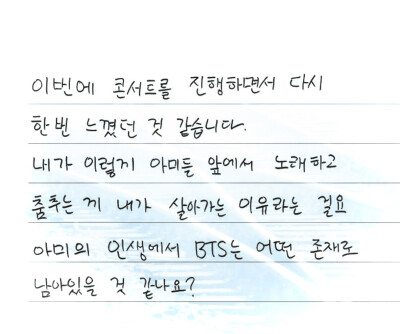 이번에 콘서트를 진행하면서 다시
한번 느꼈던 것 같습니다.
내가 이렇게 아미들 앞에서 노래하고
춤추는 게 내가 살아가는 이유라는 걸요
아미의 인생에서 BTS는 어떤 존재로
남아있을 것 같나요?